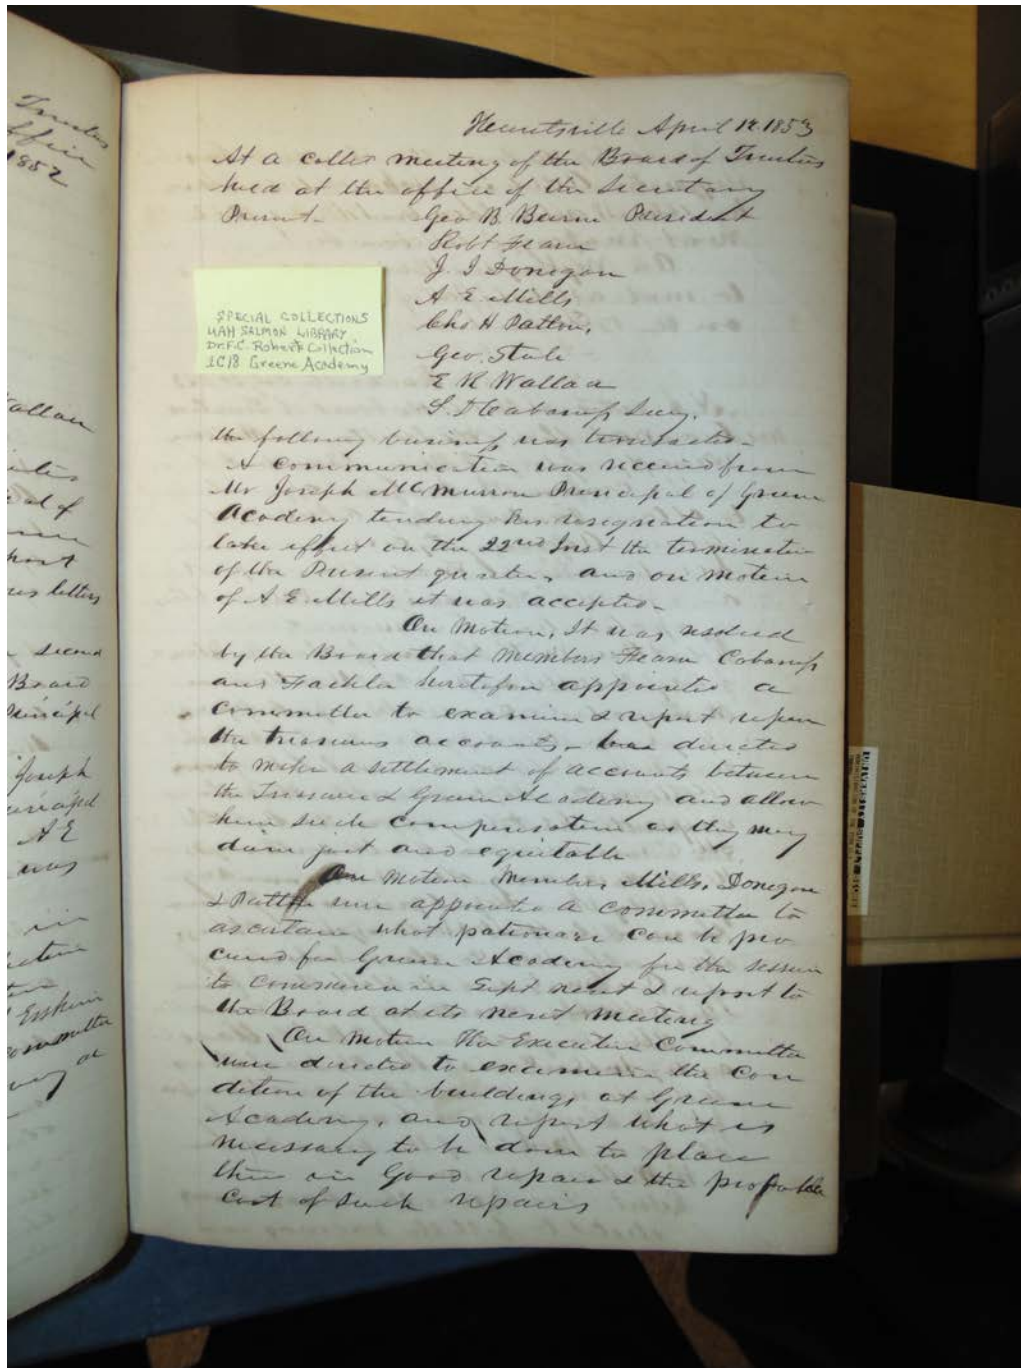 Trustees
office
1852
Wallace
al of
short
letters
second
Board
Principal
Joseph
Principal
A E
was
in
Erskine
committee
at
Huntsville April 12. 1853
At a called meeting of the Board of Trustees
held at the office of the Secretary
Present— Geo B. Beirne President
Robt Fearn
J. I Donegan
A E Mills
Cha H Patton,
Geo. Steele
E R Wallace
S. D Cabaness Secy.
SPECIAL COLLECTIONS
UAH SALMON LIBRARY
Dr. F.C. Roberts Collection
2C18 Greene Academy
the following business was transacted—
A communication was received from
Mr Joseph McMurran Principal of Greene
Academy tendering his resignation to
take effect on the 22nd Inst the termination
of the Present quarter, and on motion
of A E Mills it was accepted—
On Motion, It was resolved
by the Board that members Fearn Cabaness
and Fackler heretofore appointed a
Committee to examine & report upon
the treasurers accounts, be directed
to make a settlement of accounts between
the Treasurer & Green Academy and allow
him such compensation as they may
deem just and equitable
On motion Members Mills, Donegan
& Patton were appointed a committee to
ascertain what patronage can be pro
cured for Greene Academy for the session
to Commence in Sept next & report to
the Board at its next meeting
On motion The Executive Committee
were directed to examine the Con
dition of the buildings at Greene
Academy, and report what is
necessary to be done to place
them in Good repair & the probable
cost of such repairs